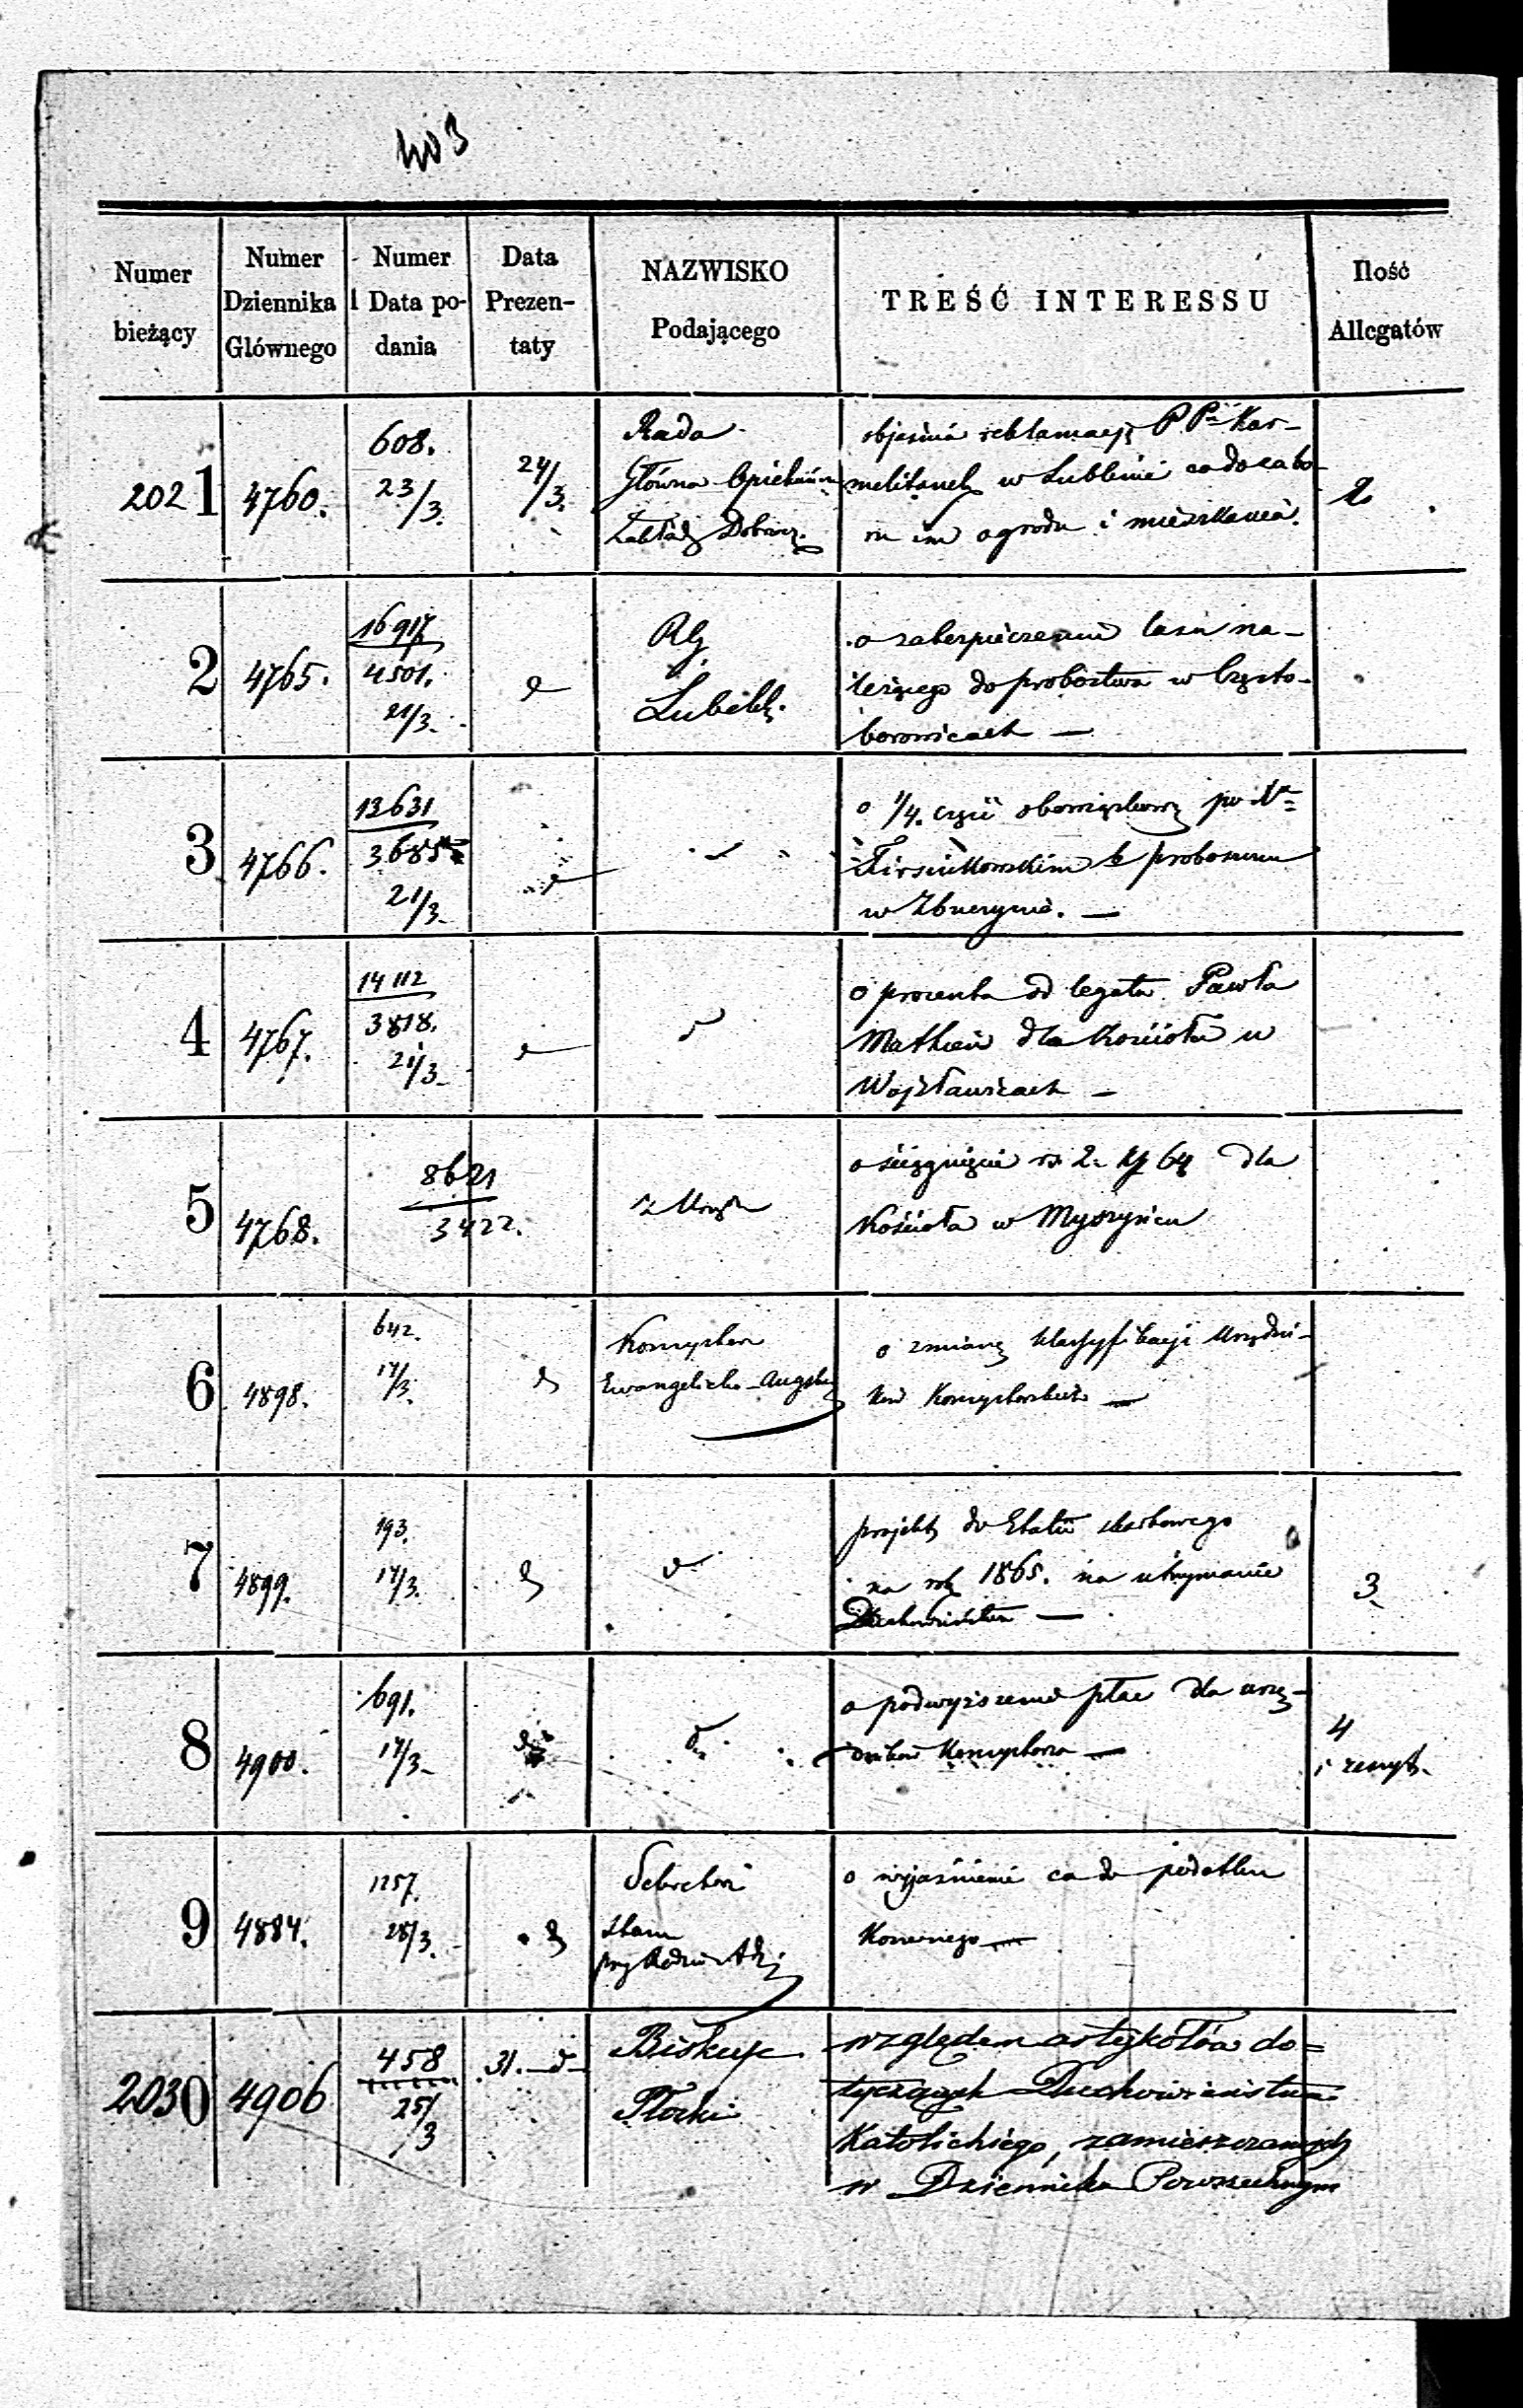 403
Numer bieżący
Numer Dziennika Głównego
Numer i Data podania
Data Prezentaty
NAZWISKO Podającego
TREŚĆ INTERESSU
Ilość Allegatów
2021 4760. 608. 23/3. 24/3.
Rada
Główna Opiekuńcz
Zakład Dobrocz.
objaśnia reklamację P.P. Kar-
melitanek w Lublinie co do zabo-
ru im ogrodu i mieszkania.
2
2 4765. 16917 4501. 21/3.
RG
Lubelsk.
o zabezpieczenie lasu na-
leżącego do probostwa w Często-
borowicach —
3 4766. 13631 3685 21/3.
o 1/4. część obowiązkową po
proboszczu
w Zbuczynie. —
4 4767. 14112 3818. 21/3.
d
o procenta od legatu Pawła
Mathieu dla Kościoła w
Wojsławicach —
5 4768. 8621 3422.
o ściągnięcie rs. 2. k 64 dla
Kościoła w Myszyńcu
6 4898. 642. 17/3. d
Konsystorz
Ewangelicko-Augsb
o zmianę klassyfikacji Urzędni-
ków Konsystorskich —
7 4899. 193. 17/3. d
d
projekt do Etatu skarbowego
na rok 1865. na utrzymanie
Duchowieństwa —
3
8 4900. 691. 17/3. d
d
o podwyższenie płac dla urzę-
dników Konsystorza —
4
i zeszyt.
9 4884. 1257. 28/3. d
Sekretarz
Stanu
przy Radzie Adm
o wyjaśnienie co do podatku
2030 4906 458 25/3 31. d
Biskup
Płocki
względem artykółów do=
tyczących Duchowieństwa
Katolickiego, zamieszczanych
w Dzienniku Powszechnym